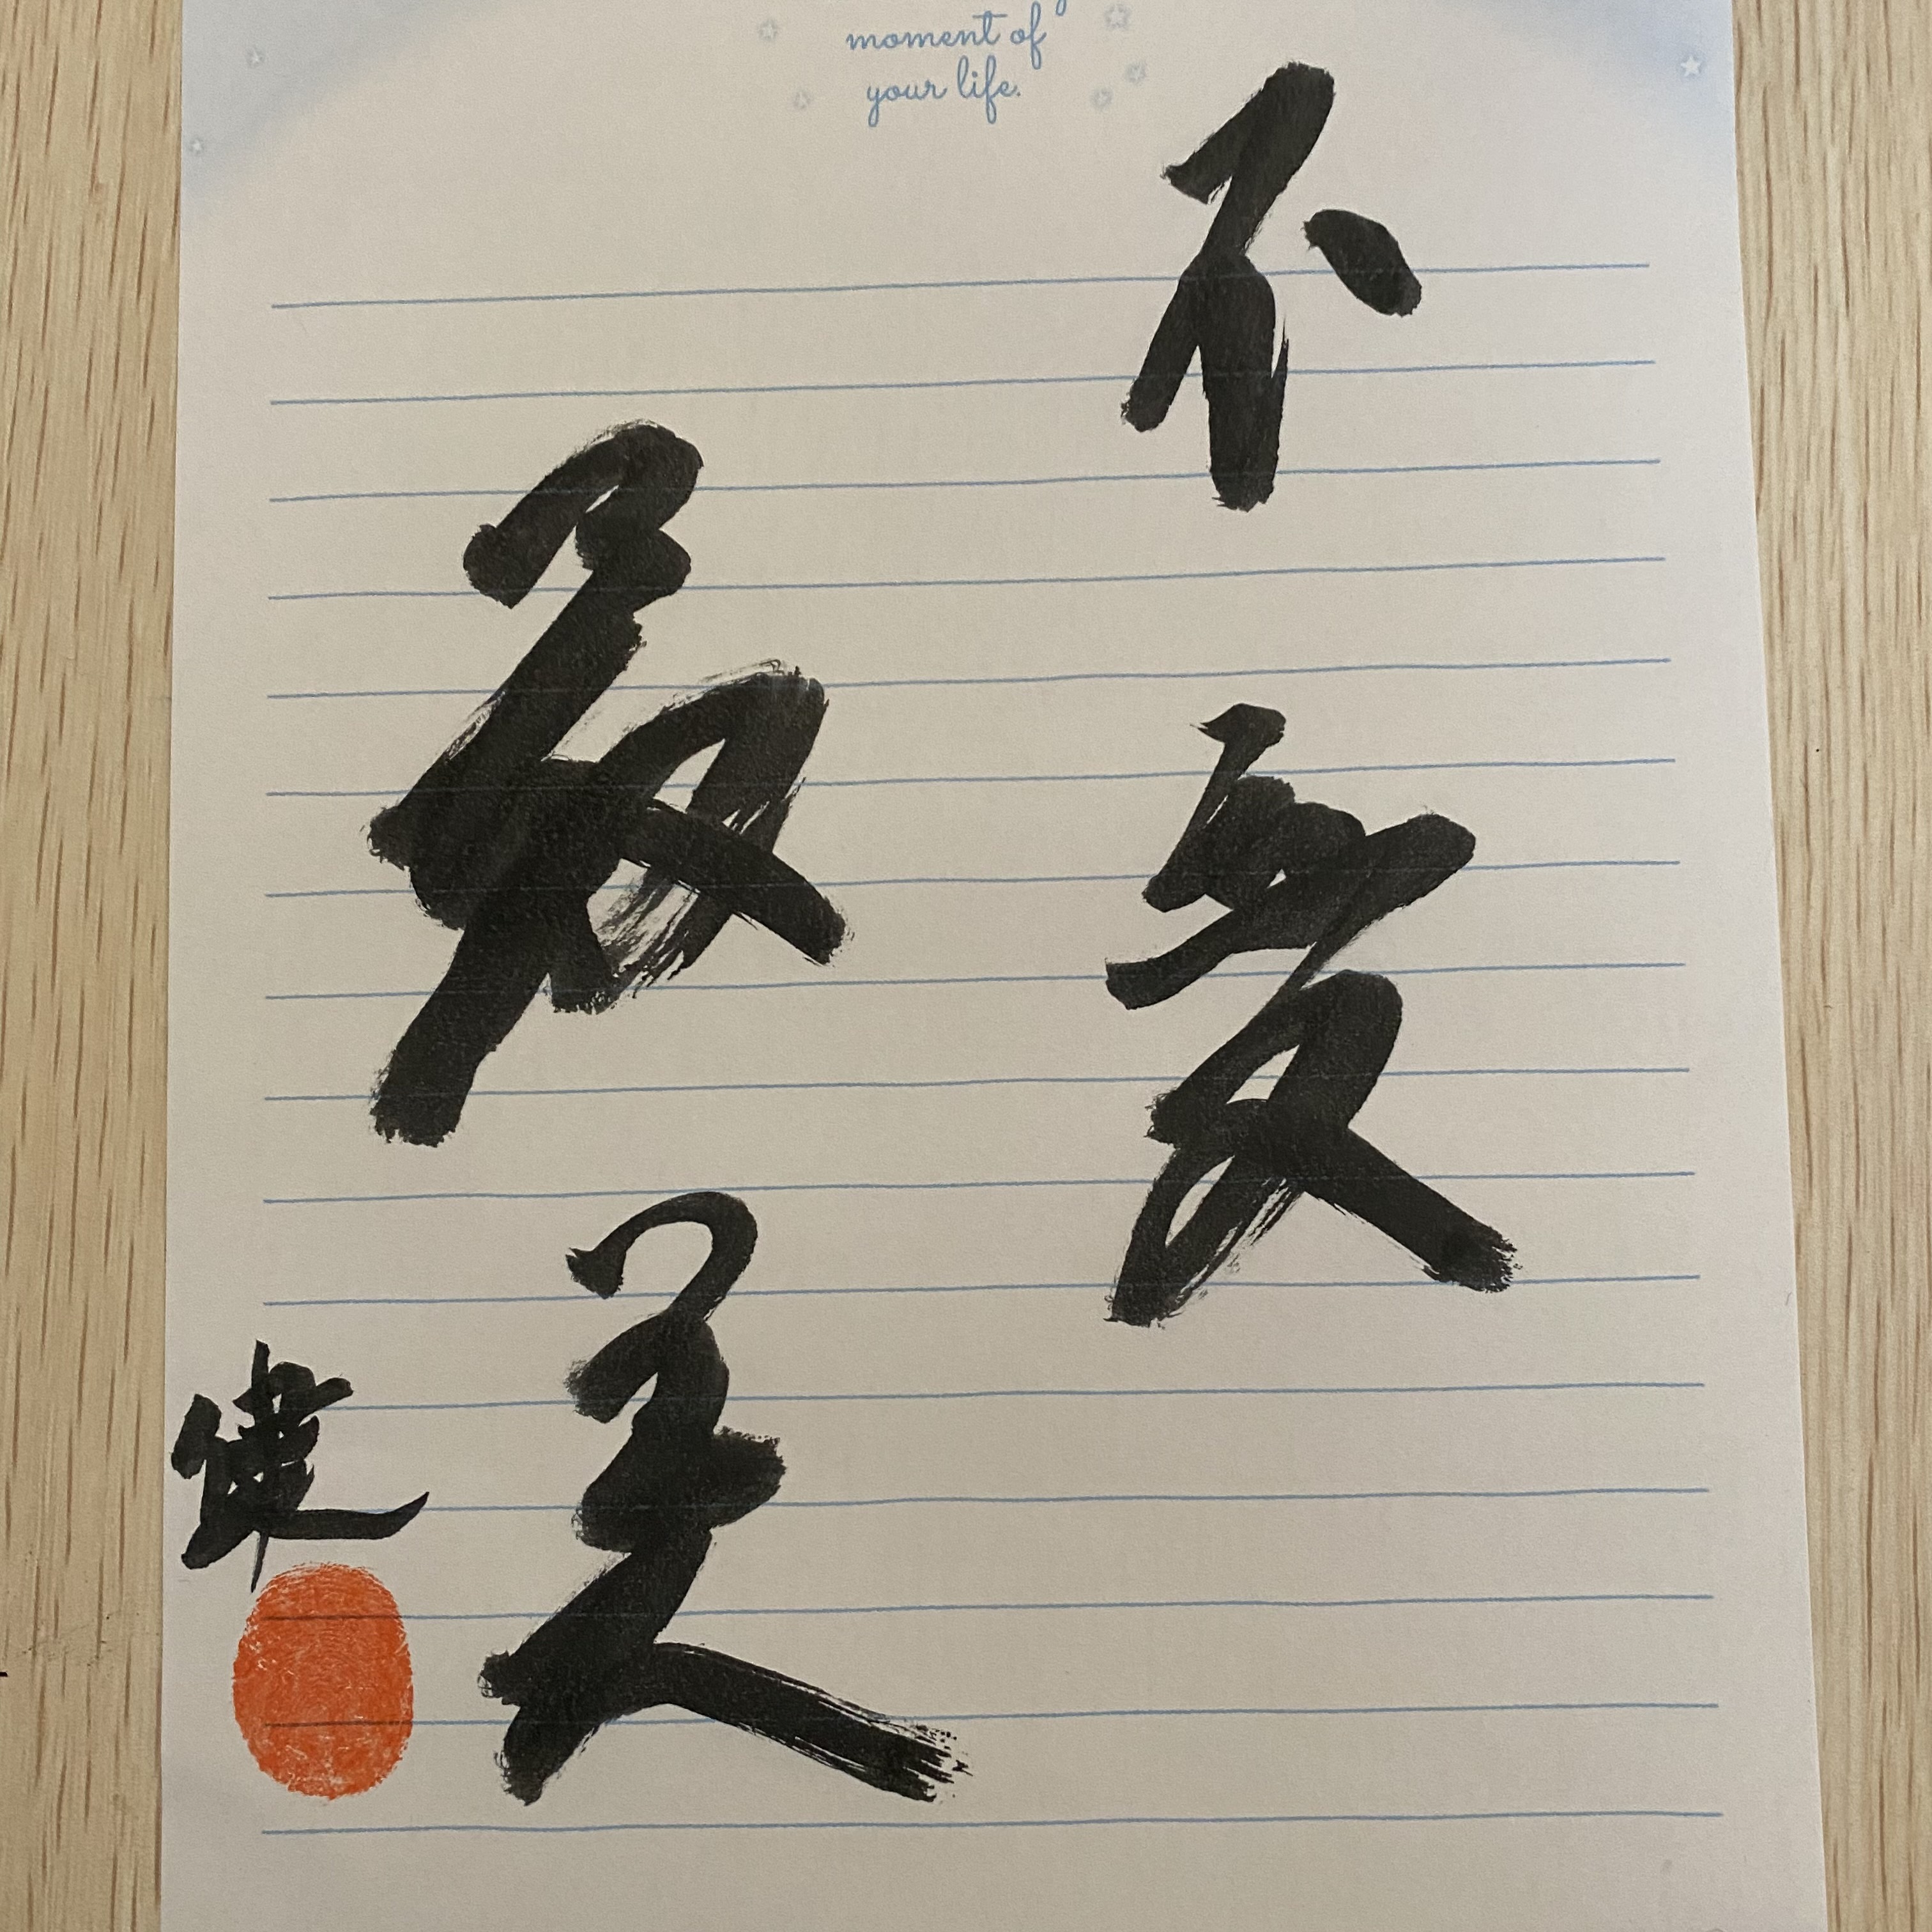 moment of
your life.
不爱
最美
健